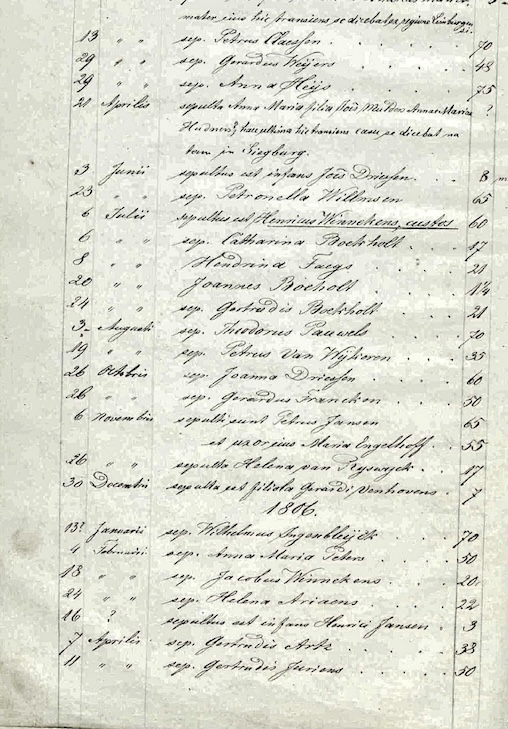 mater ejus hic transiens, se dicebat ex regione Limburgen
si.
13 " " sep. Petrus Claessen. 70
29 " " sep. Gerardus Weijers 48
29 " " sep. Anna Heijs 75
21 Aprilis sepulta Anna Maria filia Annae Maria ?
hic transiens casu se dicebat na
tam in Siegburg.
3 Junii sepultus est infans Joës Driessen. 8 m
23 " " sep. Petronella Willmsen 65
6 Julii sepultus est Henricus Winnekens, custos 60
6 " " sep. Catharina Bockholt 17
8 " " Hendrina Faegs 21
20 " " Joannes Bocholt 14
24 " " sep. Gertrudis Bockholt 21
3 Augusti sep. Theodorus Pauwels 70
19 " " sep. Petrus Van Wijkeren 35
26 Octobris sep. Joanna Driessen 60
26 " " sep. Gerardus Francken 50
6 Novembris sepulti sunt Petrus Jansen 65
et uxor eius Maria Engelhoff. 55
26 " " sepulta Helena van Ryswyck 17
30 Decembris sepulta est filiola Gerardi Venhovens 7
1806.
13? Januarii sep. Wilhelmus Ingenbleijck 70
4 Februarii sep. Anna Maria Peters 50
18 " " sep. Jacobus Winnekens 20
24 " " sep. Helena Ariaens 22
16 ? sepultus est infans Henrici Jansen 3
7 Aprilis sep. Gertrudis Arts 33
11 " " sep. Gertrudis Juriens 50